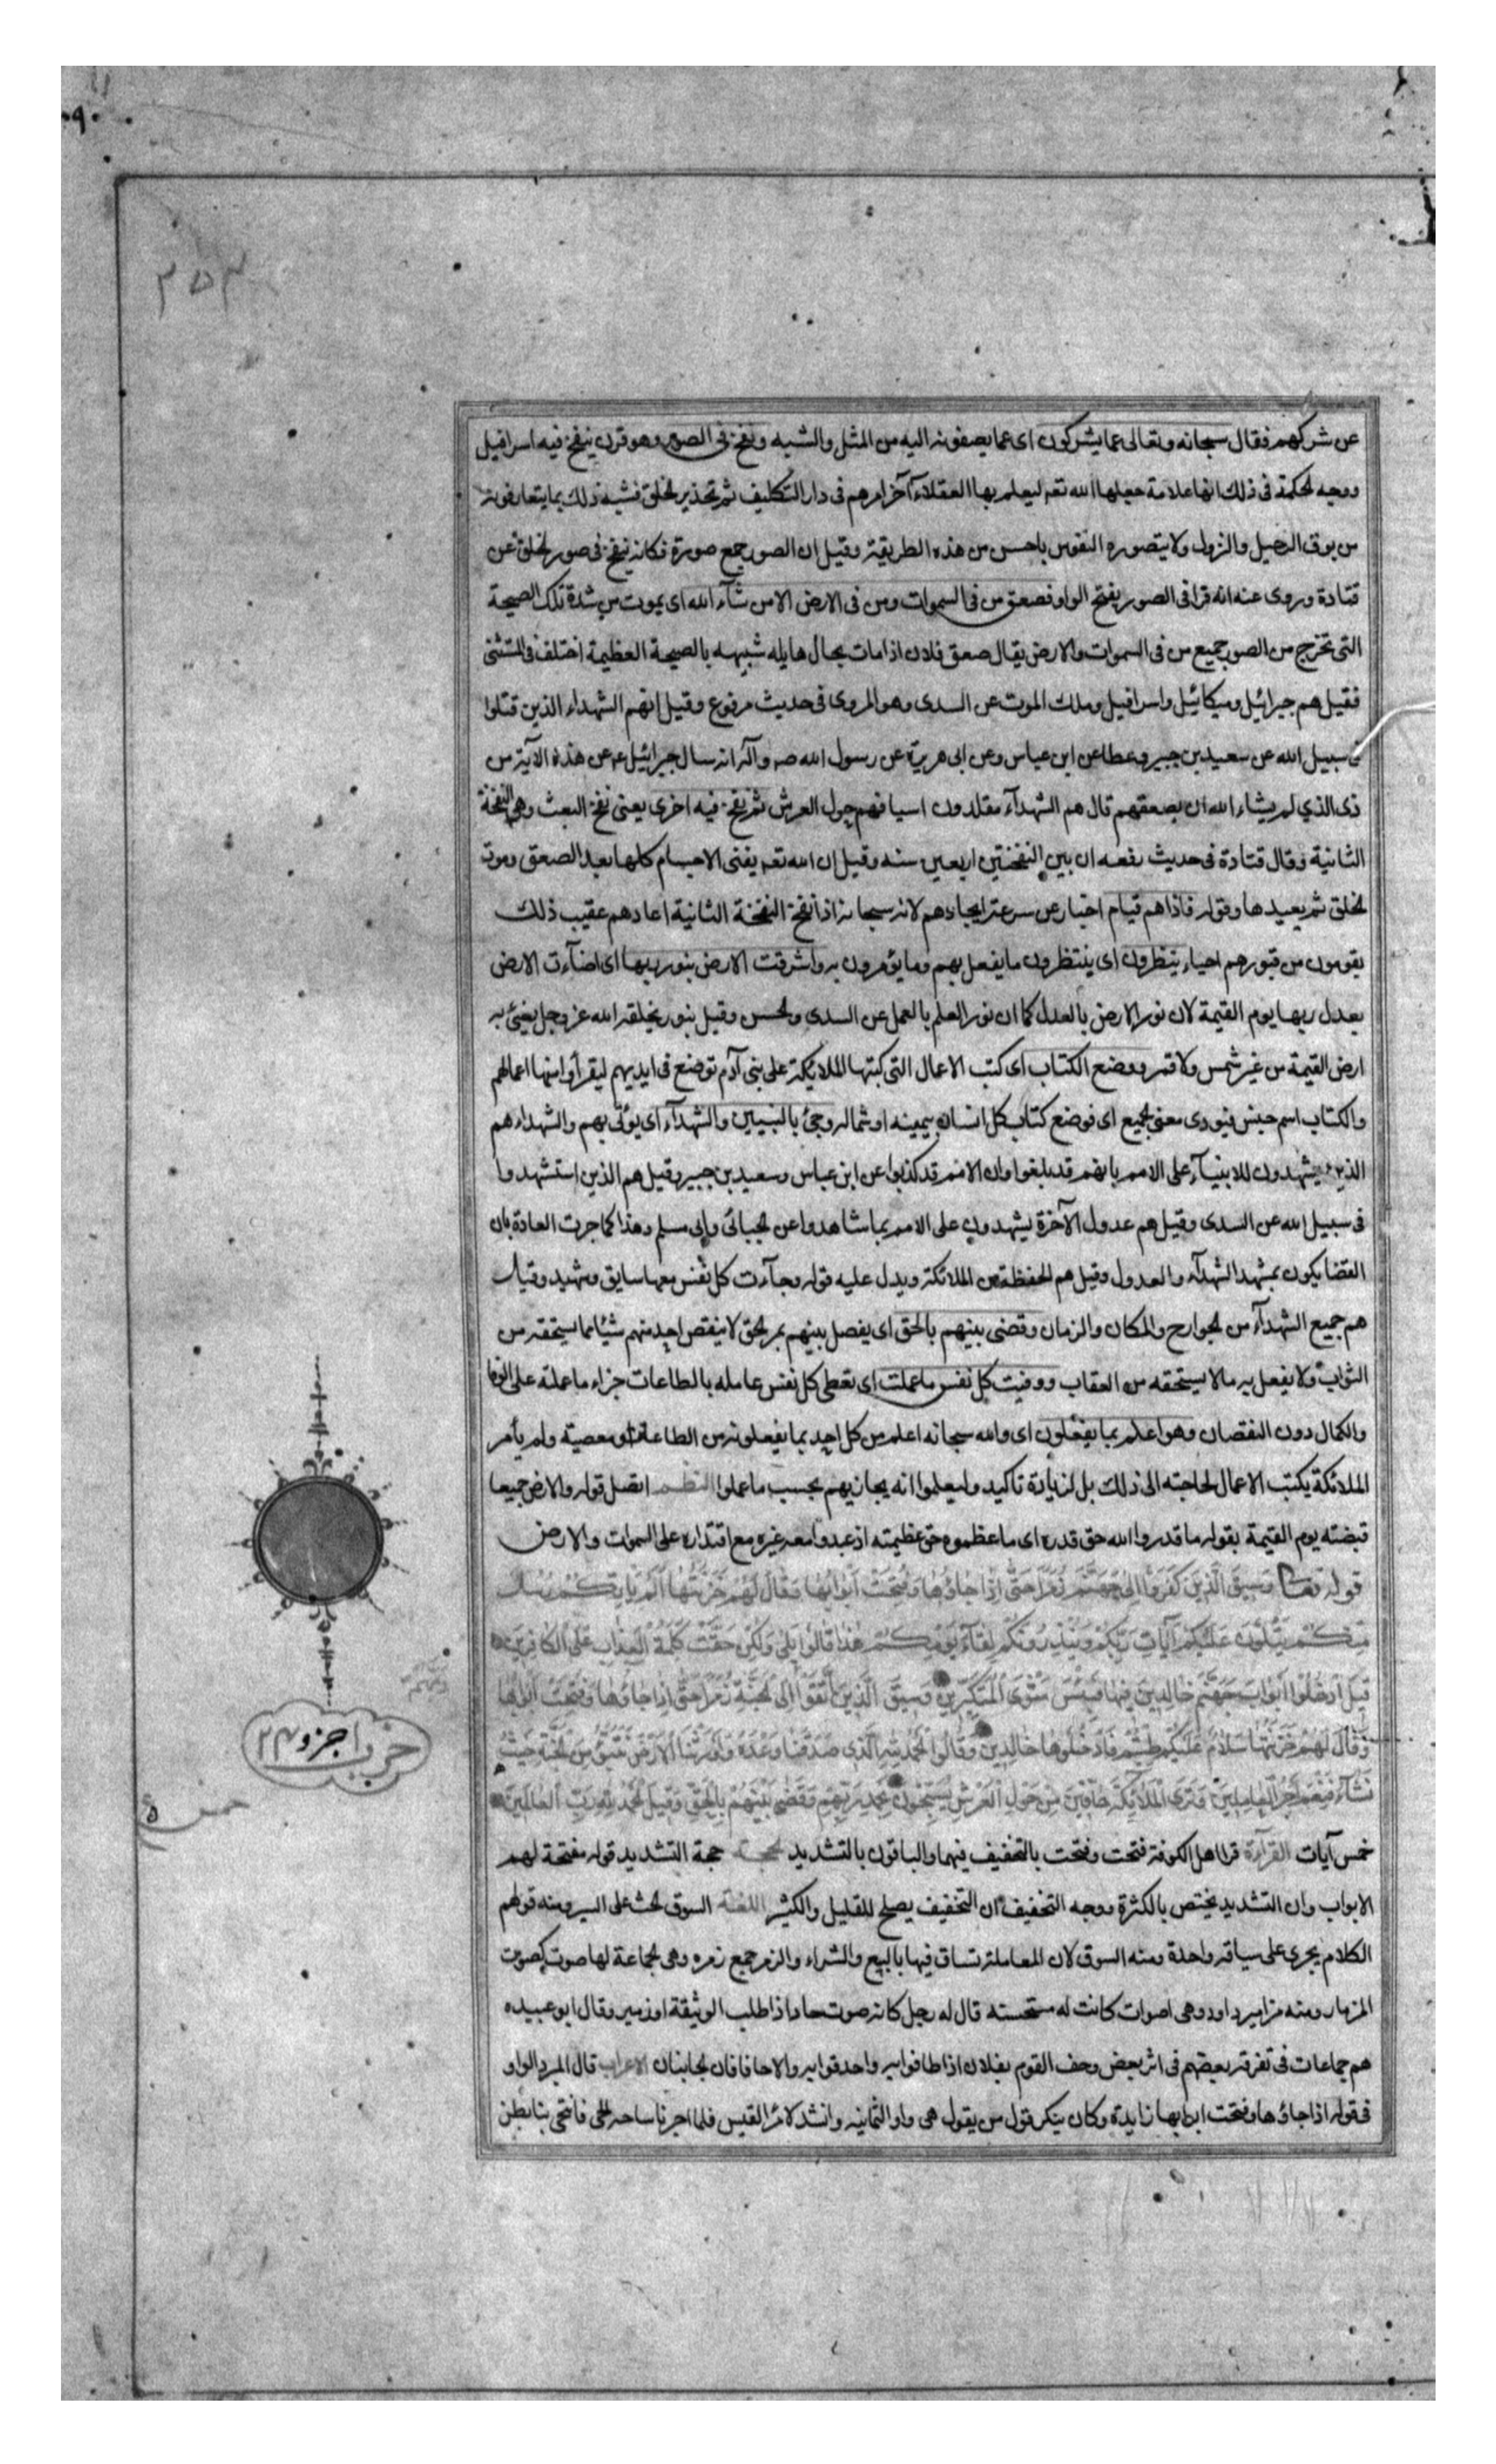 عن شركهم فقال سبحانه وتعالى عما يشركون اى عما يصفونه اليه من المثل والشبه ونفخ فى الصور وهو قرن ينفخ فيه اسرافيل
ووجه الحكمة فى ذلك انها علامة جعلها الله تعه ليعلم بها العقلاء آخر امرهم فى دار التكليف ثم تحذير الخلق فشبه ذلك بما يتعارفونه
من بوق الرحيل والنزول ولا يتصوره النفوس باحسن من هذه الطريقة وقيل ان الصور جمع صورة فكانه ينفخ فى صور الخلق عن
قتادة وروى عنه انه قرا فى الصور بفتح الواو فصعق من فى السموات ومن فى الارض الا من شآء الله اى يموت من شدة تلك الصيحة
التى تخرج من الصور جميع من فى السموات والارض يقال صعق فلان اذا مات بحال هايله شبيهه بالصيحة العظيمة اختلف فى المستثنى
فقيل هم جبرائيل وميكائيل واسرافيل وملك الموت عن السدى وهو المروى فى حديث مرفوع وقيل انهم الشهداء الذين قتلوا
فى سبيل الله عن سعيد بن جبير وعطا عن ابن عباس وعن ابى هريرة عن رسول الله صه وآله انه سال جبرائيل عه عن هذه الآية من
ذى الذي لم يشاء الله ان يصعقهم قال هم الشهدآء مقلدون اسيافهم حول العرش ثم نفخ فيه اخرى يعنى نفخ البعث وهى النفخة
الثانية وقال قتادة فى حديث رفعه ان بين النفختين اربعين سنه وقيل ان الله تعه يفنى الاجسام كلها بعد الصعق وموت
الخلق ثم يعيدها وقوله فاذا هم قيام اخبار عن سرعة ايجادهم لانه سبحانه اذا نفخ النفخة الثانية اعادهم عقيب ذلك
يقومون من قبورهم احياء ينظرون اى ينتظرون ما يفعل بهم وما يؤمرون به واشرقت الارض بنور ربها اى اضآءت الارض
بعدل ربها يوم القيمة لان نور الارض بالعدل كما ان نور العلم بالعمل عن السدى والحسن وقيل بنور يخلقه الله عز وجل يضئ به
ارض القيمة من غير شمس ولا قمر ووضع الكتاب اى كتب الاعمال التى كتبتها الملائكة على بنى آدم توضع فى ايديهم ليقرأوا منها اعمالهم
والكتاب اسم جنس فيودى معنى الجميع اى فوضع كتاب كل انسان بيمينه او شماله وجئ بالنبيين والشهدآء اى يؤتى بهم والشهداء هم
الذين يشهدون للانبيآء على الامم بانهم قد بلغوا وان الامم قد كذبوا عن ابن عباس وسعيد بن جبير وقيل هم الذين استشهدوا
فى سبيل الله عن السدى وقيل هم عدول الآخرة يشهدون على الامم بما شاهدوا عن الجبائى وابى مسلم وهذا كما جرت العادة بان
القضا يكون بمشهد الشهدآء والعدول وقيل هم الحفظة من الملائكة ويدل عليه قوله وجآءت كل نفس معها سايق وشهيد وقيل
هم جميع الشهدآء من الجوارح والمكان والزمان وقضى بينهم بالحق اى يفصل بينهم بمر الحق لا ينقص احد منهم شيئا مما يستحقه من
الثواب ولا يفعل به ما لا يستحقه من العقاب ووفيت كل نفس ما عملت اى تعطى كل نفس عامله بالطاعات جزاء ما عملته على الوفا
والكمال دون النقصان وهو اعلم بما يفعلون اى والله سبحانه اعلم من كل احد بما يفعلونه من الطاعات او معصية ولم يأمر
الملائكة يكتب الاعمال لحاجته الى ذلك بل لزيادة تاكيد وليعلموا انه يجازيهم بحسب ما عملوا النظم اتصل قوله والارض جميعا
قبضته يوم القيمة بقوله ما قدروا الله حق قدره اى ما عظموه حق عظيمته اذ عبدوا معه غيره مع اقتداره على السموات والارض
قوله تعالى وَسِيقَ الَّذِينَ كَفَرُوا اِلى جَهَنَّمَ زُمَرًا حَتّى اِذا جَاؤُها وَفُتِحَتْ اَبْوابُها وَقالَ لَهُمْ خَزَنَتُها اَلَمْ يَأتِكُمْ رُسُلٌ
مِنكُمْ يَتْلُونَ عَلَيْكُمْ آياتِ رَبِّكُمْ وَيُنْذِرُونَكُمْ لِقآءَ يَوْمِكُمْ هذا قالُوا بَلى وَلكِنْ حَقَّتْ كَلِمَةُ الْعَذابِ عَلَى الْكافِرِينَ
قِيلَ ادْخُلُوا اَبْوابَ جَهَنَّمَ خالِدِينَ فِيها فَبِئْسَ مَثْوَى الْمُتَكَبِّرِينَ وَسِيقَ الَّذِينَ اتَّقَوْا اِلَى الْجَنَّةِ زُمَرًا حَتّى اِذا جَاؤُها وَفُتِحَتْ اَبْوابُها
وَقالَ لَهُمْ خَزَنَتُها سَلامٌ عَلَيْكُمْ طِبْتُمْ فَادْخُلُوها خالِدِينَ وَقالُوا الْحَمْدُ لِلّهِ الَّذِى صَدَقَنا وَعْدَهُ وَاَوْرَثَنَا الْاَرْضَ نَتَبَوَّءُ مِنَ الْجَنَّةِ حَيْثُ
نَشآءُ فَنِعْمَ اَجْرُ الْعامِلِينَ وَتَرَى الْمَلائِكَةَ حافِّينَ مِنْ حَوْلِ الْعَرْشِ يُسَبِّحُونَ بِحَمْدِ رَبِّهِمْ وَقُضِىَ بَيْنَهُمْ بِالْحَقِّ وَقِيلَ الْحَمْدُ لِلّهِ رَبِّ الْعالَمِينَ
خمس آيات القرآءة قرا اهل الكوفة فتحت وفتحت بالتخفيف فيهما والباقون بالتشديد الحجة حجة التشديد قوله مفتحة لهم
الابواب وان التشديد يختص بالكثرة ووجه التخفيف ان التخفيف يصلح للقليل والكثير اللغة السوق الحث على السير ومنه قولهم
الكلام يجرى على سياقه واحدة ومنه السوق لان المعاملة تساق فيها بالبيع والشراء والزمر جمع زمره وهى الجماعة لها صوت كصوت
المزمار ومنه مزامير داود وهى اصوات كانت له مستحسنه قال له رجل كانه صوت حاد اذا طلب الوثيقة او زمير وقال ابو عبيده
هم جماعات فى تفرقه بعضهم فى اثر بعض وحف القوم بفلان اذا طافوا به واحدقوا به والاحفافان الجانبان الاعراب قال المبرد الواو
فى قوله اذا جاؤها وفتحت ابوابها زايدة وكان ينكر قول من يقول هى واو الثمانيه وانشد لامرؤ القيس فلما اجزنا ساحه الحى فانتحى بنا بطن
حزب ا جزو ٢٤
خمس